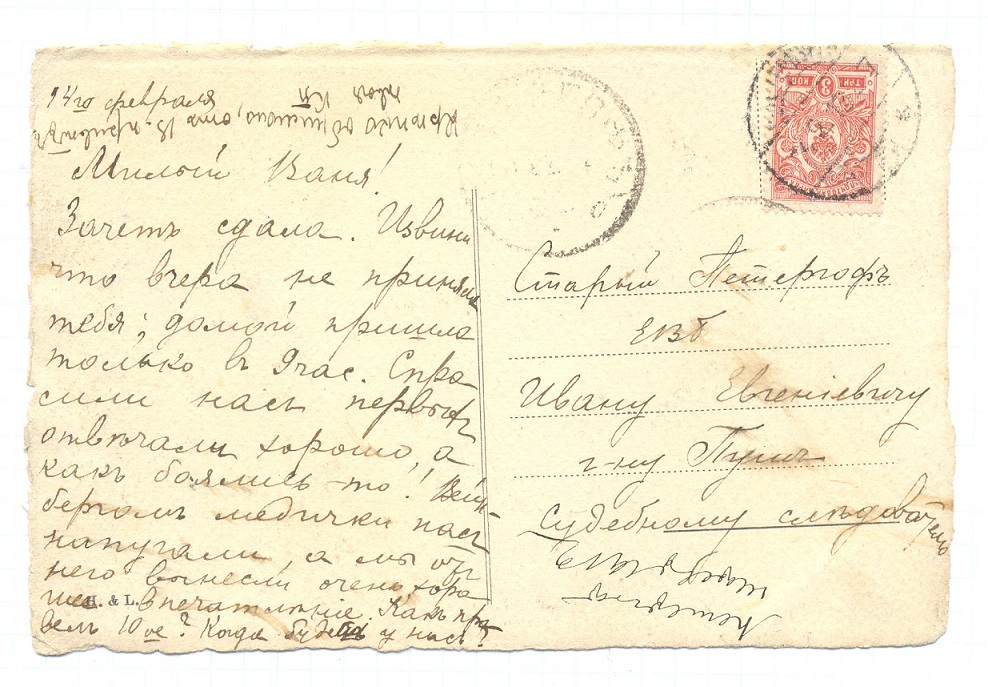 14го февраля
Милый Ваня!
Зачетъ сдала. Извини
что вчера не приняла
тебя; домой пришла
только в 9 час. Спро
сили насъ первыхъ
отвѣчали хорошо, а
какъ боялись-то! Вейн-
бергомъ медички насъ
напугали, а мы отъ
него вынесли очень хоро
шее впечатлѣніе. Какъ про
велъ 10ое? Когда будешь у насъ?
Крѣпко
твоя
H. & L.
ТРИ 3 КОП
Старый Петергофъ
ЕВБ
Ивану Евгеніевичу
г-ну Пушъ
Судебному слѣдователю